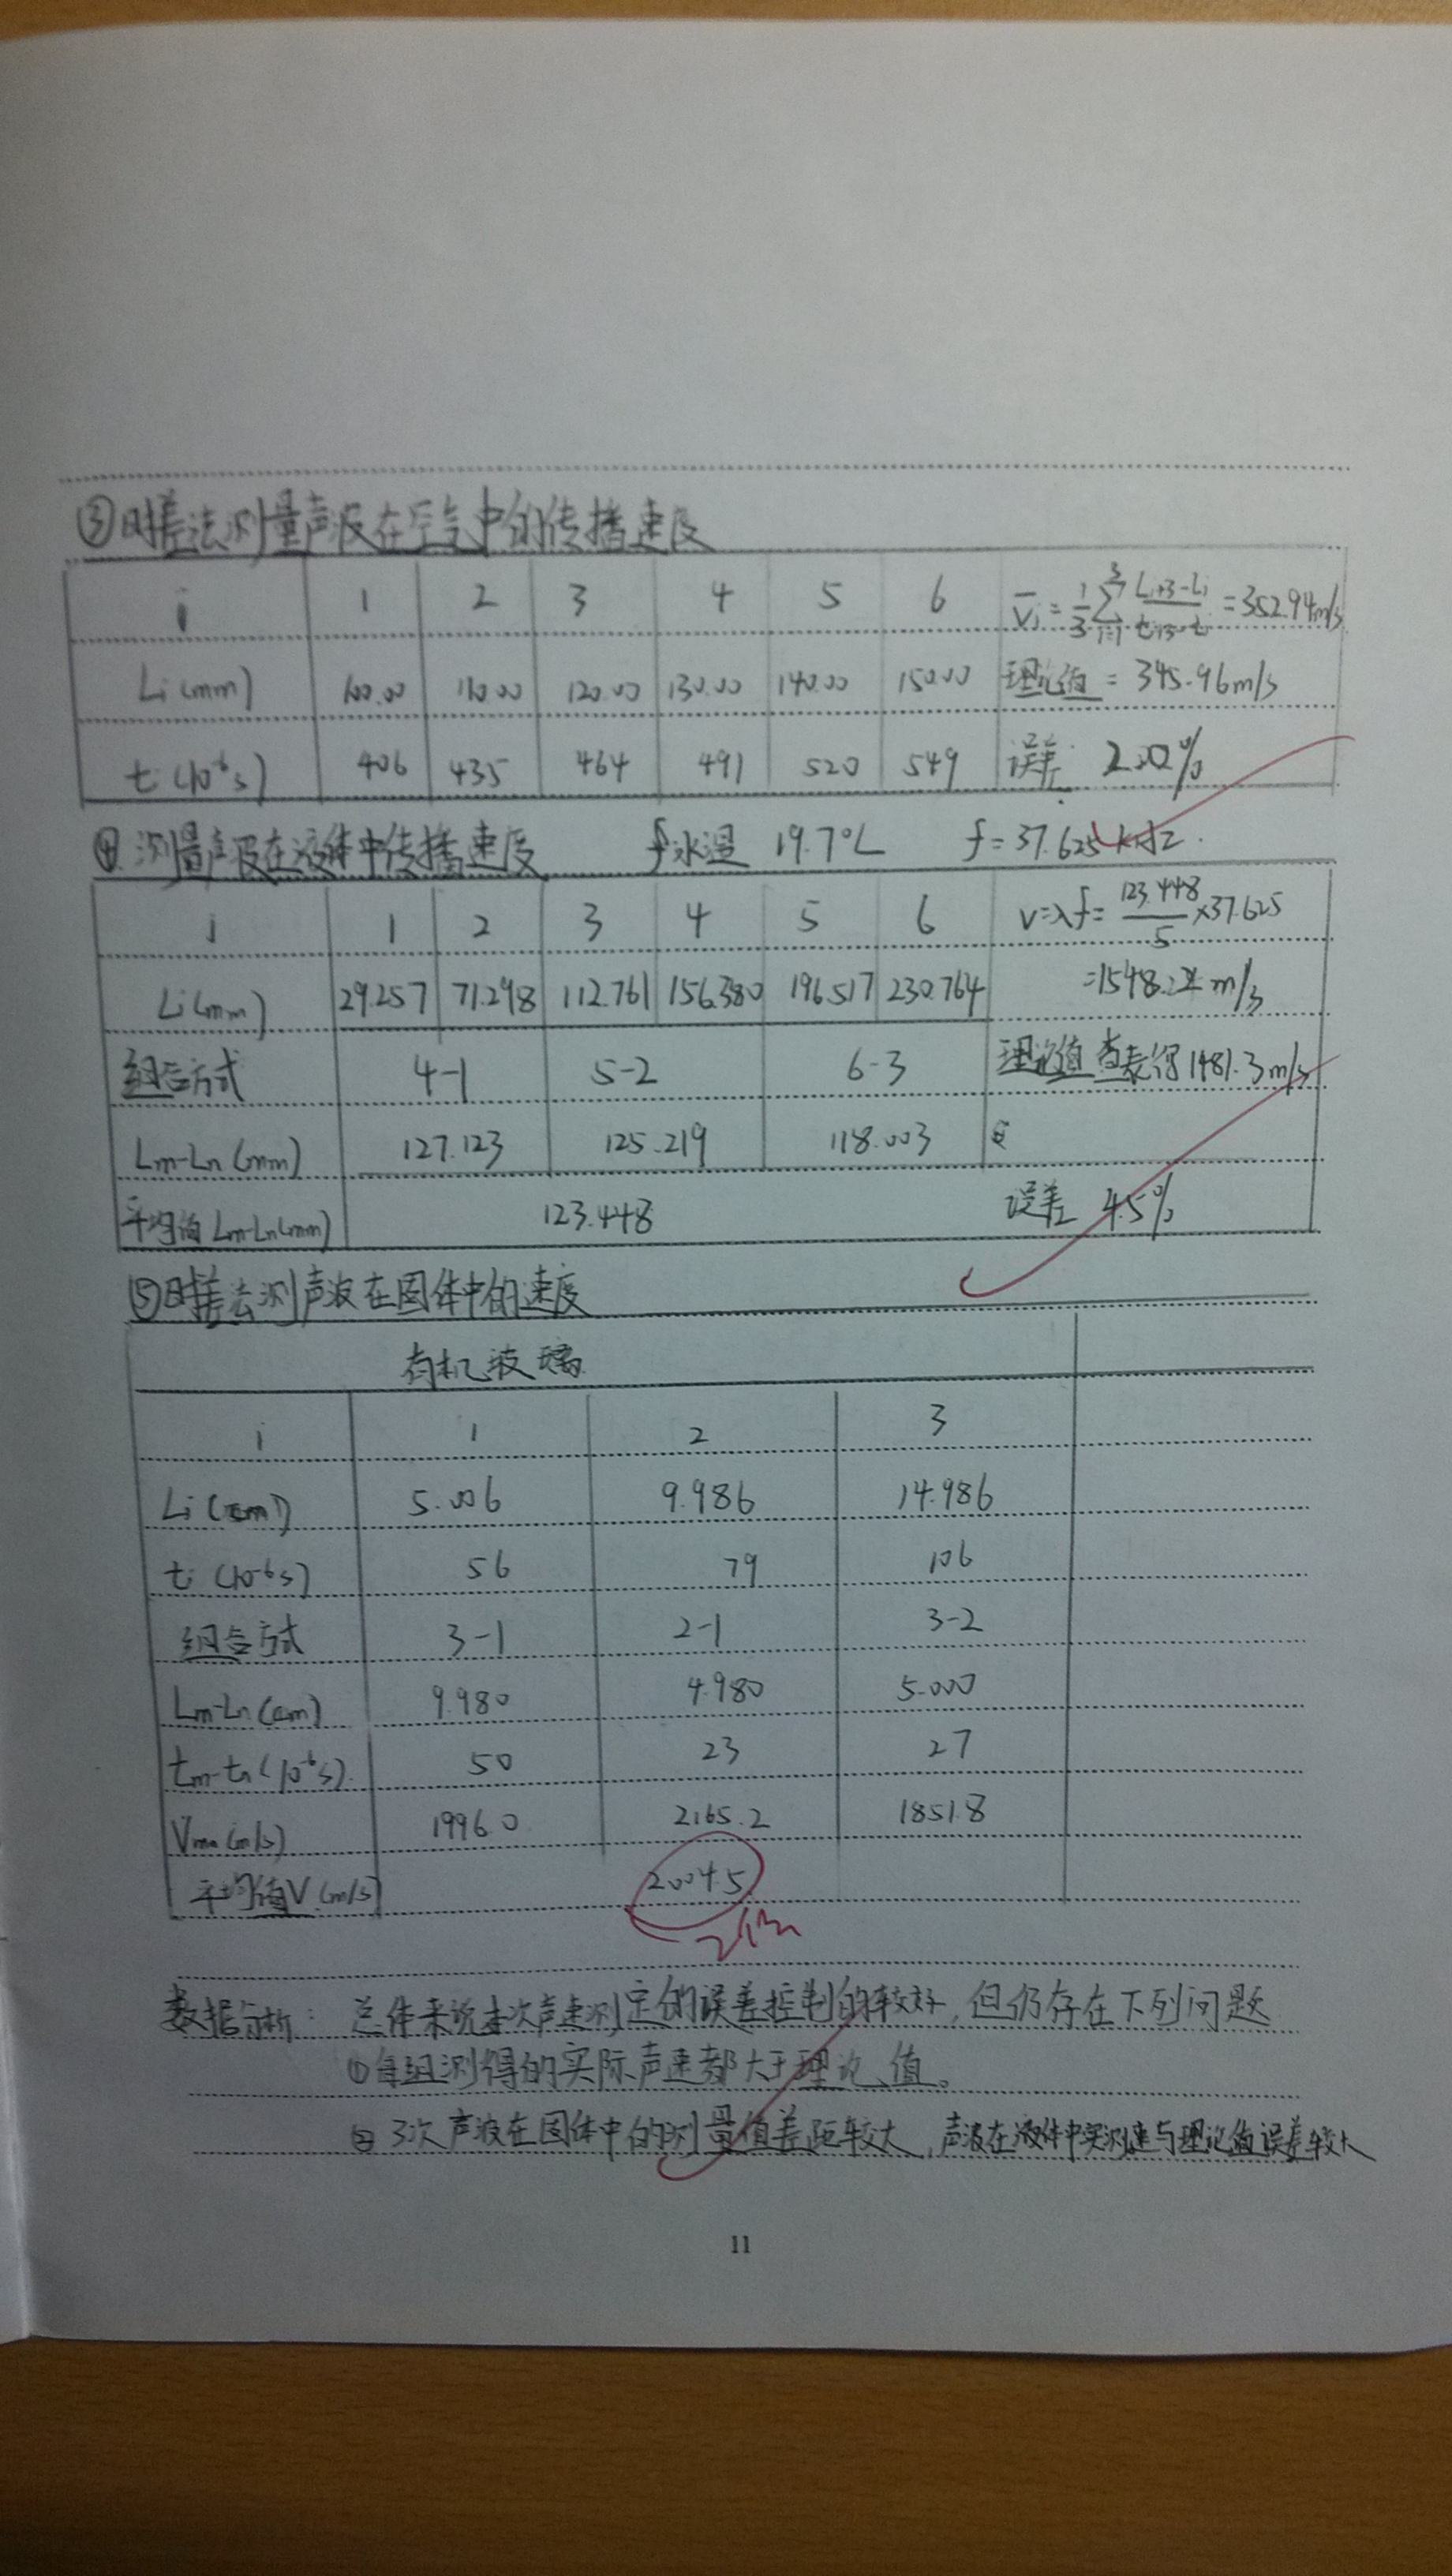 ③时差法测量声波在空气中的传播速度
i 1 2 3 4 5 6 V̅i = 1/3 Σ(i=1→3) (Li+3-Li)/(ti+3-ti) = 352.94m/s
Li(mm) 100.00 110.00 120.00 130.00 140.00 150.00 理论值 = 345.96m/s
ti(10⁻⁶s) 406 435 464 491 520 549 误差: 2.02%
④ 测量声波在液体中传播速度 水温 19.7℃ f=37.625kHz.
i 1 2 3 4 5 6 v=λf= 123.448/5 ×37.625
Li(mm) 29.257 71.298 112.761 156.380 196.517 230.764 =1548.2 m/s
组合方式 4-1 5-2 6-3 理论值 查表得1481.3m/s
Lm-Ln(mm) 127.123 125.219 118.003
平均值 Lm-Ln(mm) 123.448 误差 4.5%
⑤时差法测声波在固体中的速度
有机玻璃
i 1 2 3
Li(cm) 5.006 9.986 14.986
ti(10⁻⁶s) 56 79 106
组合方式 3-1 2-1 3-2
Lm-Ln(cm) 9.980 4.980 5.000
tm-tn(10⁻⁶s). 50 23 27
Vmn(m/s) 1996.0 2165.2 1851.8
平均值V(m/s) 2004.5
数据分析: 总体来说本次声速测定的误差控制的较好,但仍存在下列问题
①每组测得的实际声速都大于理论值。
② 3次声波在固体中的测量值差距较大,声波在液体中实测速与理论值误差较大
11